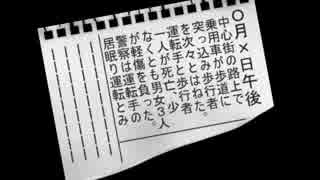 〇月×日午後
中心街の路上で
乗用車が歩道に
突っ込み歩行者
を次々とはねた。
運転手と歩行者
一人が死亡、少
なくとも男女3人
が軽傷を負った。
警察は運転手の
居眠り運転とみ